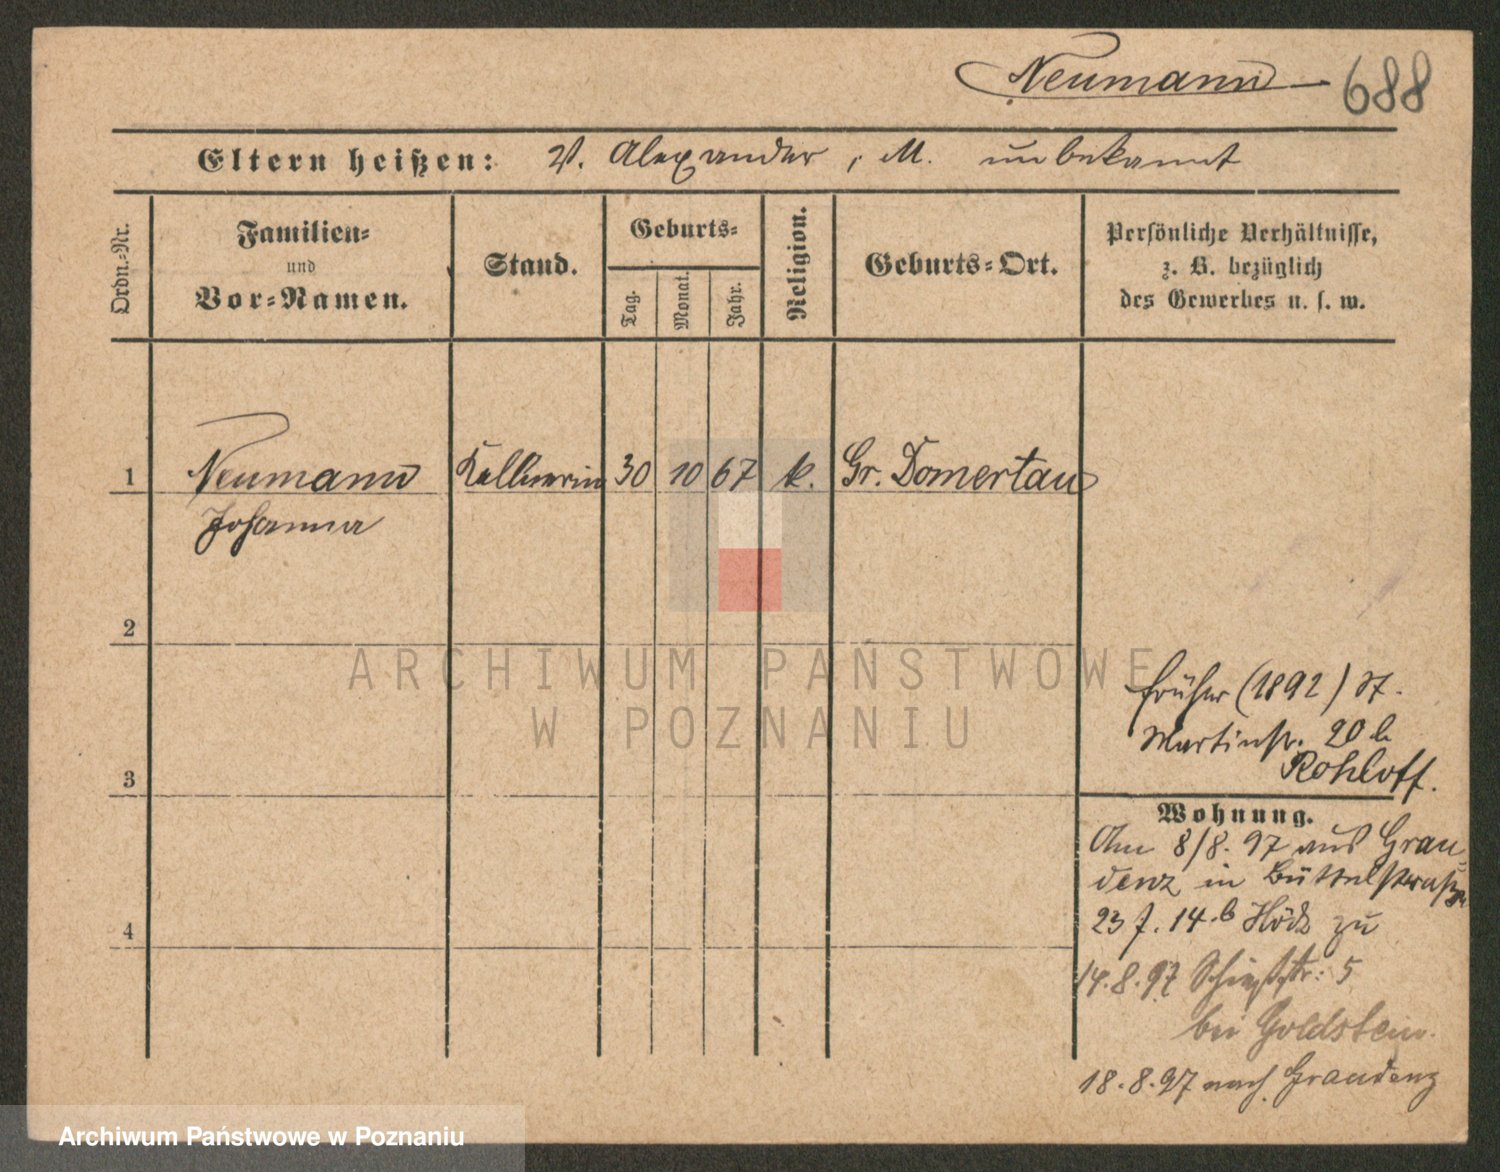 Neumann 688
Eltern heißen: V. Alexander, M. unbekannt
Ordn.-Nr.
Familien-
und
Vor-Namen.
Stand.
Geburts-
Tag.
Monat.
Jahr.
Religion.
Geburts-Ort.
Persönliche Verhältnisse,
z. B. bezüglich
des Gewerbes u. s. w.
1 Neumann Kellnerin 30 10 67 k. Gr. Domertau
Johanna
2
ARCHIWUM PAŃSTWOWE
W POZNANIU
früher (1892) St.
Martinstr. 20 b
Rohloff.
3
Wohnung.
Am 8/8. 97 aus Grau
denz in Büttelstraße
23 14. b zu
4
14.8.97 Schießstr: 5
bei Goldstein.
18.8.97 nach Graudenz
Archiwum Państwowe w Poznaniu